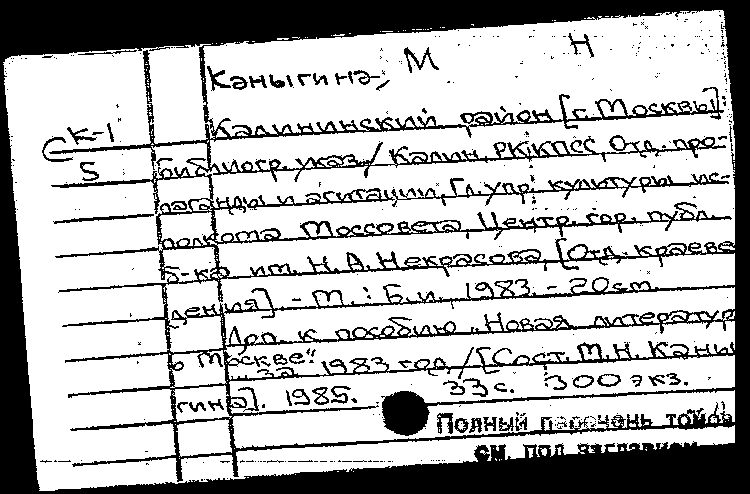 Каныгина, М Н
К-1
5
Калининский район [г. Москвы]:
библиогр. указ. / Калин. РК КПСС, Отд. про-
паганды и агитации, Гл. упр. культуры ис-
полкома Моссовета, Центр. гор. публ.
б-ка им. Н. А. Некрасова, [Отд. краеве
дения]. - М. : Б. и., 1983. - 20 см.
Доп. к пособию „Новая литератур
о Москве" за 1983 год / [Сост. М. Н. Каны
гина]. 1985. 33 с. 300 экз.
Полный перечень томов
см. под заглавием